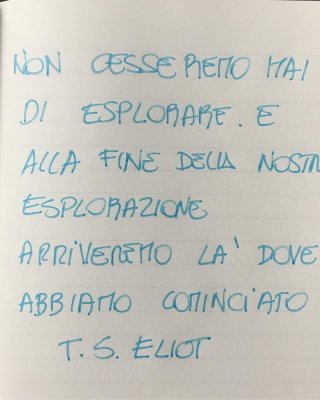 NON CESSEREMO MAI
DI ESPLORARE. E
ALLA FINE DELLA NOSTR
ESPLORAZIONE
ARRIVEREMO LA' DOVE
ABBIAMO COMINCIATO
T. S. ELIOT